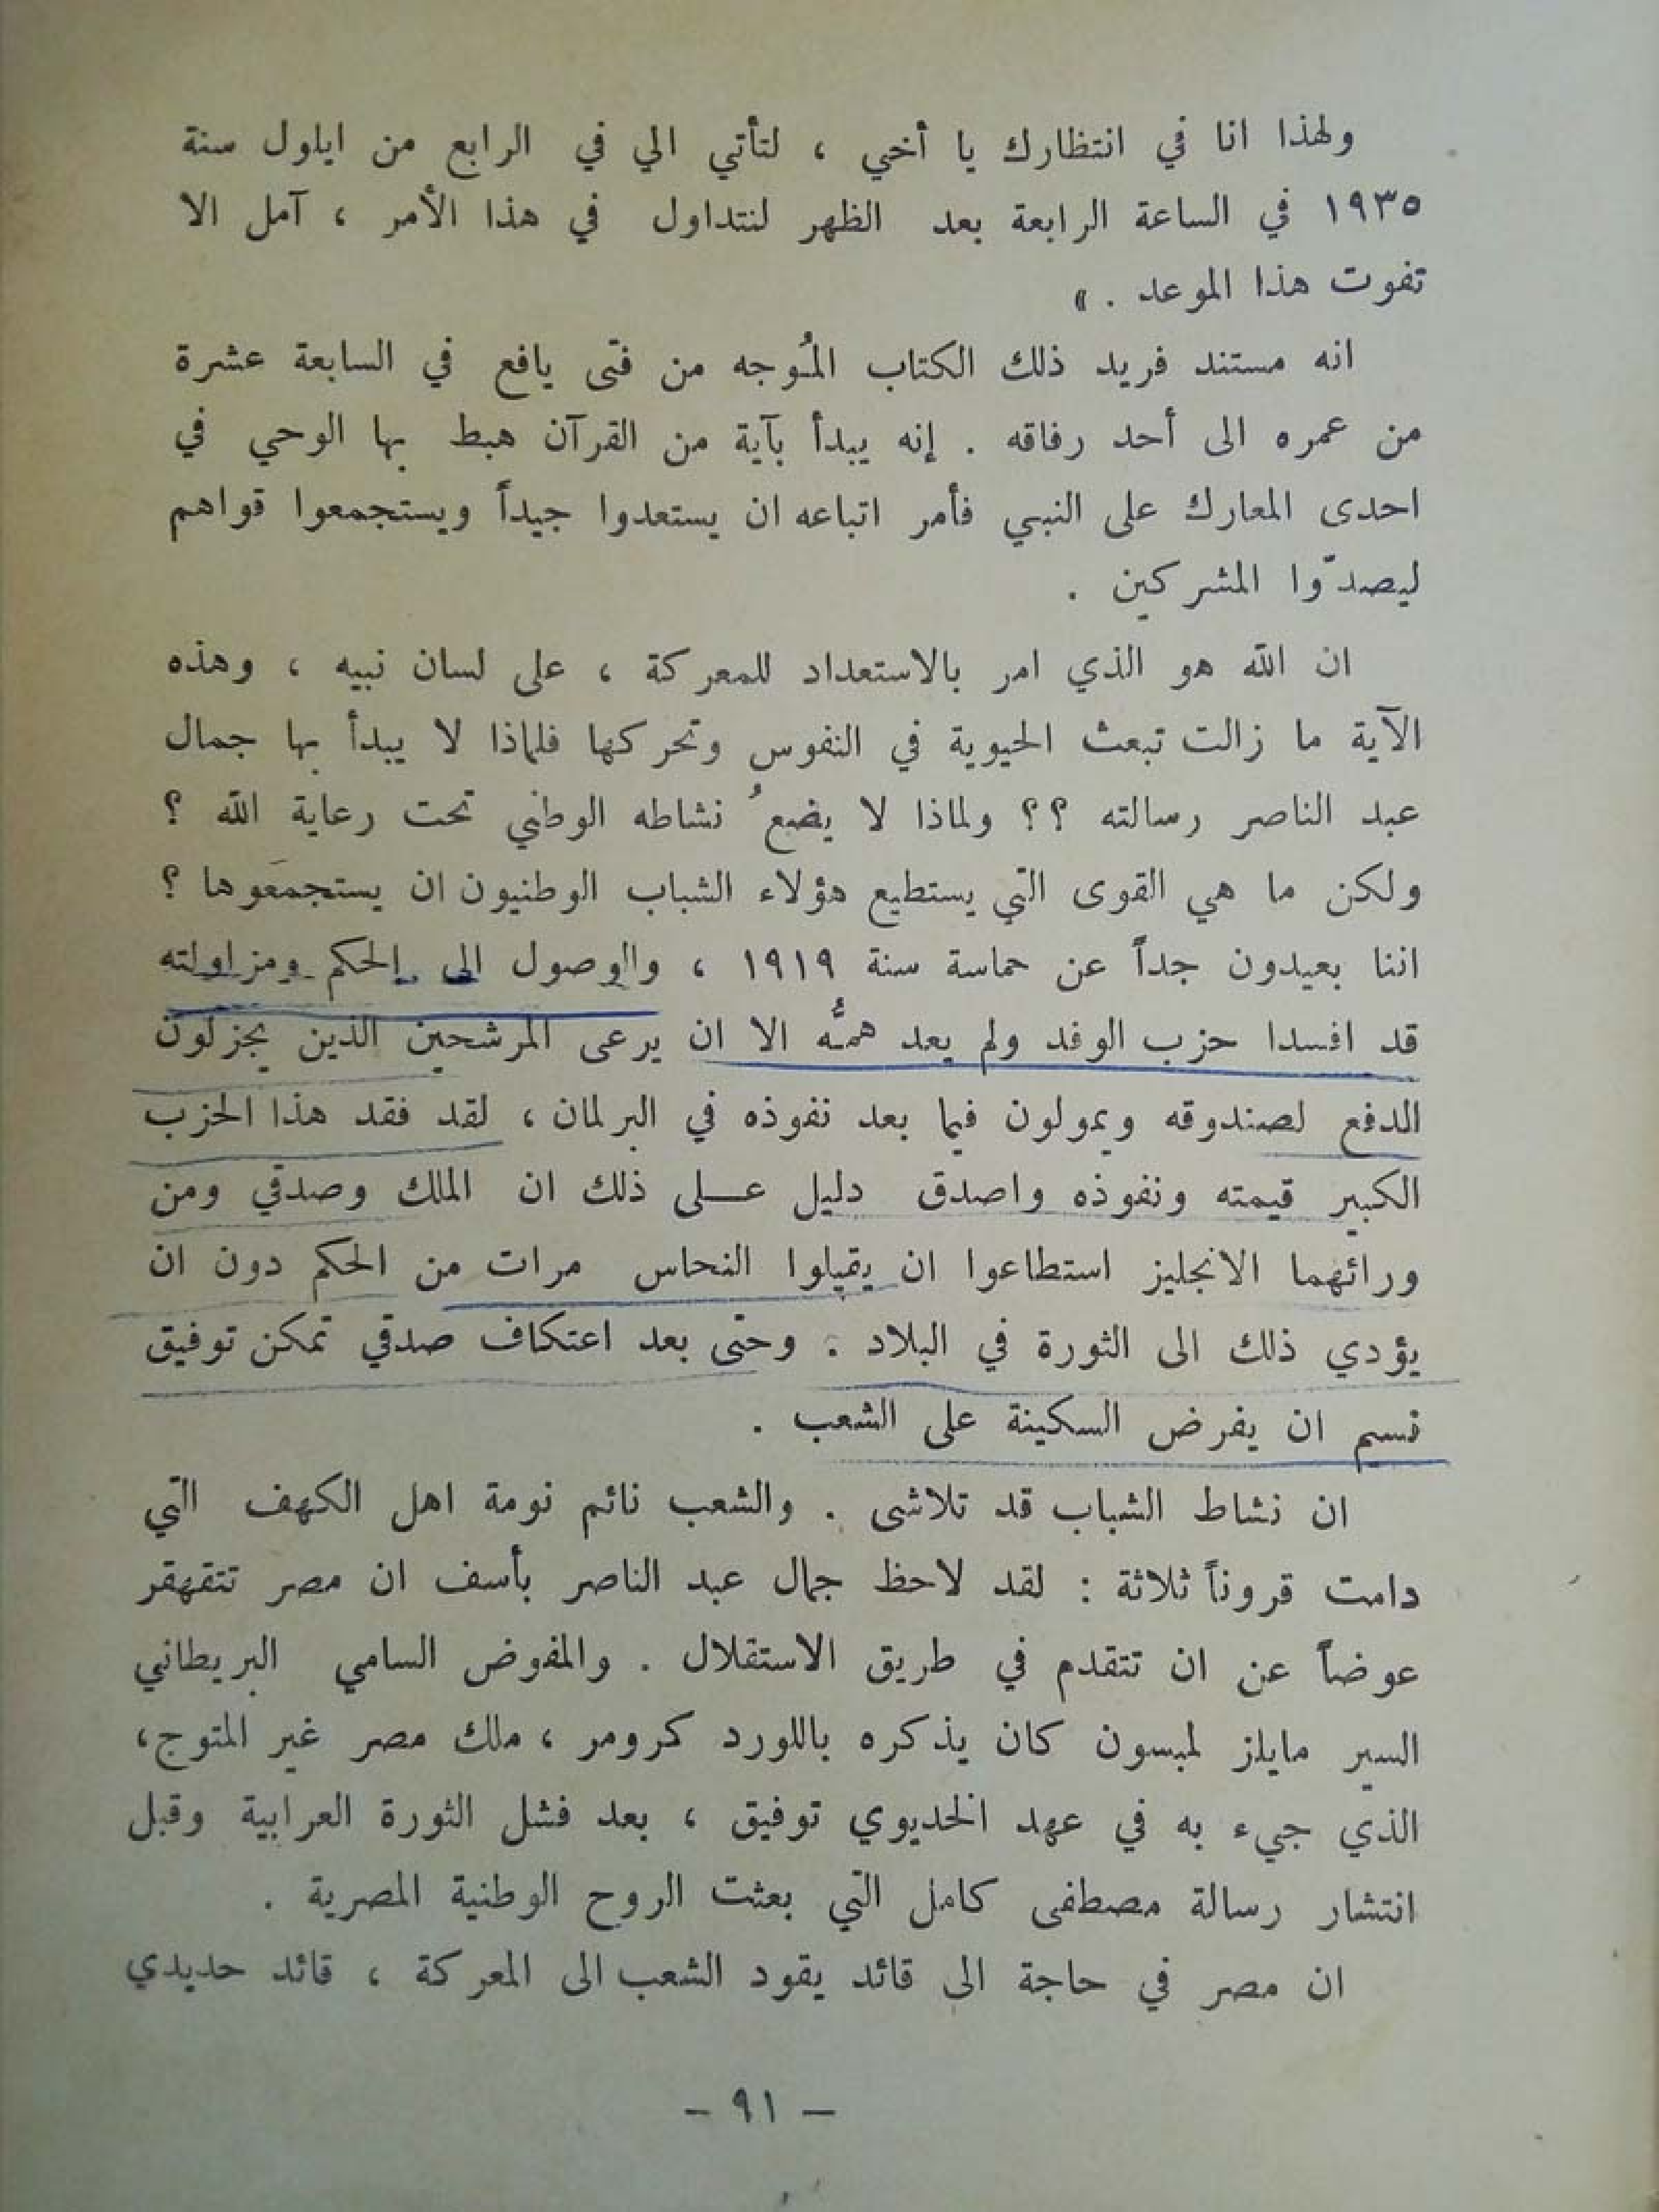 ولهذا انا في انتظارك يا أخي ، لتأتي الي في الرابع من ايلول سنة
١٩٣٥ في الساعة الرابعة بعد الظهر لنتداول في هذا الأمر ، آمل الا
تفوت هذا الموعد . »
انه مستند فريد ذلك الكتاب المُوجه من فتى يافع في السابعة عشرة
من عمره الى أحد رفاقه . إنه يبدأ بآية من القرآن هبط بها الوحي في
احدى المعارك على النبي فأمر اتباعه ان يستعدوا جيداً ويستجمعوا قواهم
ليصدّوا المشركين .
ان الله هو الذي امر بالاستعداد للمعركة ، على لسان نبيه ، وهذه
الآية ما زالت تبعث الحيوية في النفوس وتحركها فلماذا لا يبدأ بها جمال
عبد الناصر رسالته ؟؟ ولماذا لا يضعُ نشاطه الوطني تحت رعاية الله ؟
ولكن ما هي القوى التي يستطيع هؤلاء الشباب الوطنيون ان يستجمعَوها ؟
اننا بعيدون جداً عن حماسة سنة ١٩١٩ ، والوصول الى الحكم ومزاولته
قد افسدا حزب الوفد ولم يعد همُّه الا ان يرعى المرشحين الذين يجزلون
الدفع لصندوقه ويمولون فيما بعد نفوذه في البرلمان ، لقد فقد هذا الحزب
الكبير قيمته ونفوذه واصدق دليل عــلى ذلك ان الملك وصدقي ومن
ورائهما الانجليز استطاعوا ان يقيلوا النحاس مرات من الحكم دون ان
يؤدي ذلك الى الثورة في البلاد . وحتى بعد اعتكاف صدقي تمكن توفيق
نسيم ان يفرض السكينة على الشعب .
ان نشاط الشباب قد تلاشى . والشعب نائم نومة اهل الكهف التي
دامت قروناً ثلاثة : لقد لاحظ جمال عبد الناصر بأسف ان مصر تتقهقر
عوضاً عن ان تتقدم في طريق الاستقلال . والمفوض السامي البريطاني
السير مايلز لمبسون كان يذكره باللورد كرومر ، ملك مصر غير المتوج،
الذي جيء به في عهد الخديوي توفيق ، بعد فشل الثورة العرابية وقبل
انتشار رسالة مصطفى كامل التي بعثت الروح الوطنية المصرية .
ان مصر في حاجة الى قائد يقود الشعب الى المعركة ، قائد حديدي
– ٩١ –